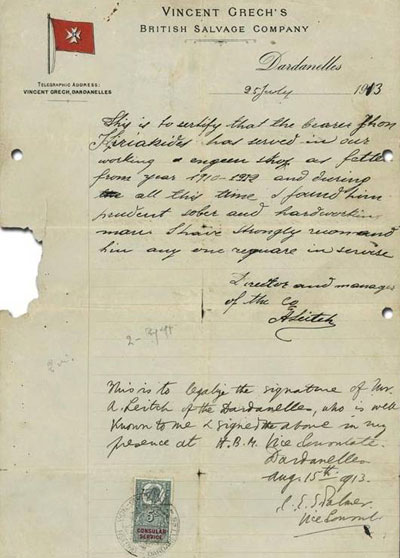 VINCENT GRECH'S
BRITISH SALVAGE COMPANY
TELEGRAPHIC ADDRESS:
VINCENT GRECH, DARDANELLES
Dardanelles
25 July 1913
This is to sertify that the bearer Jhon
Kiriakides has served in our
working & engeen shop as fetter
from year 1910-1912 and during
all this time I found him
prudent sober and hardworking
man I have strongly recomand
him any one requare in servise
Director and manager
of the Co
A Leitch
This is to legalize the signature of Mr.
A. Leitch of the Dardanelles, who is well
known to me & signed the above in my
presence at H.B.M. Vice Consulate.
Dardanelles
Aug. 15th 1913.
C. E. S. Palmer
Vice Consul
5
CONSULAR
SERVICE